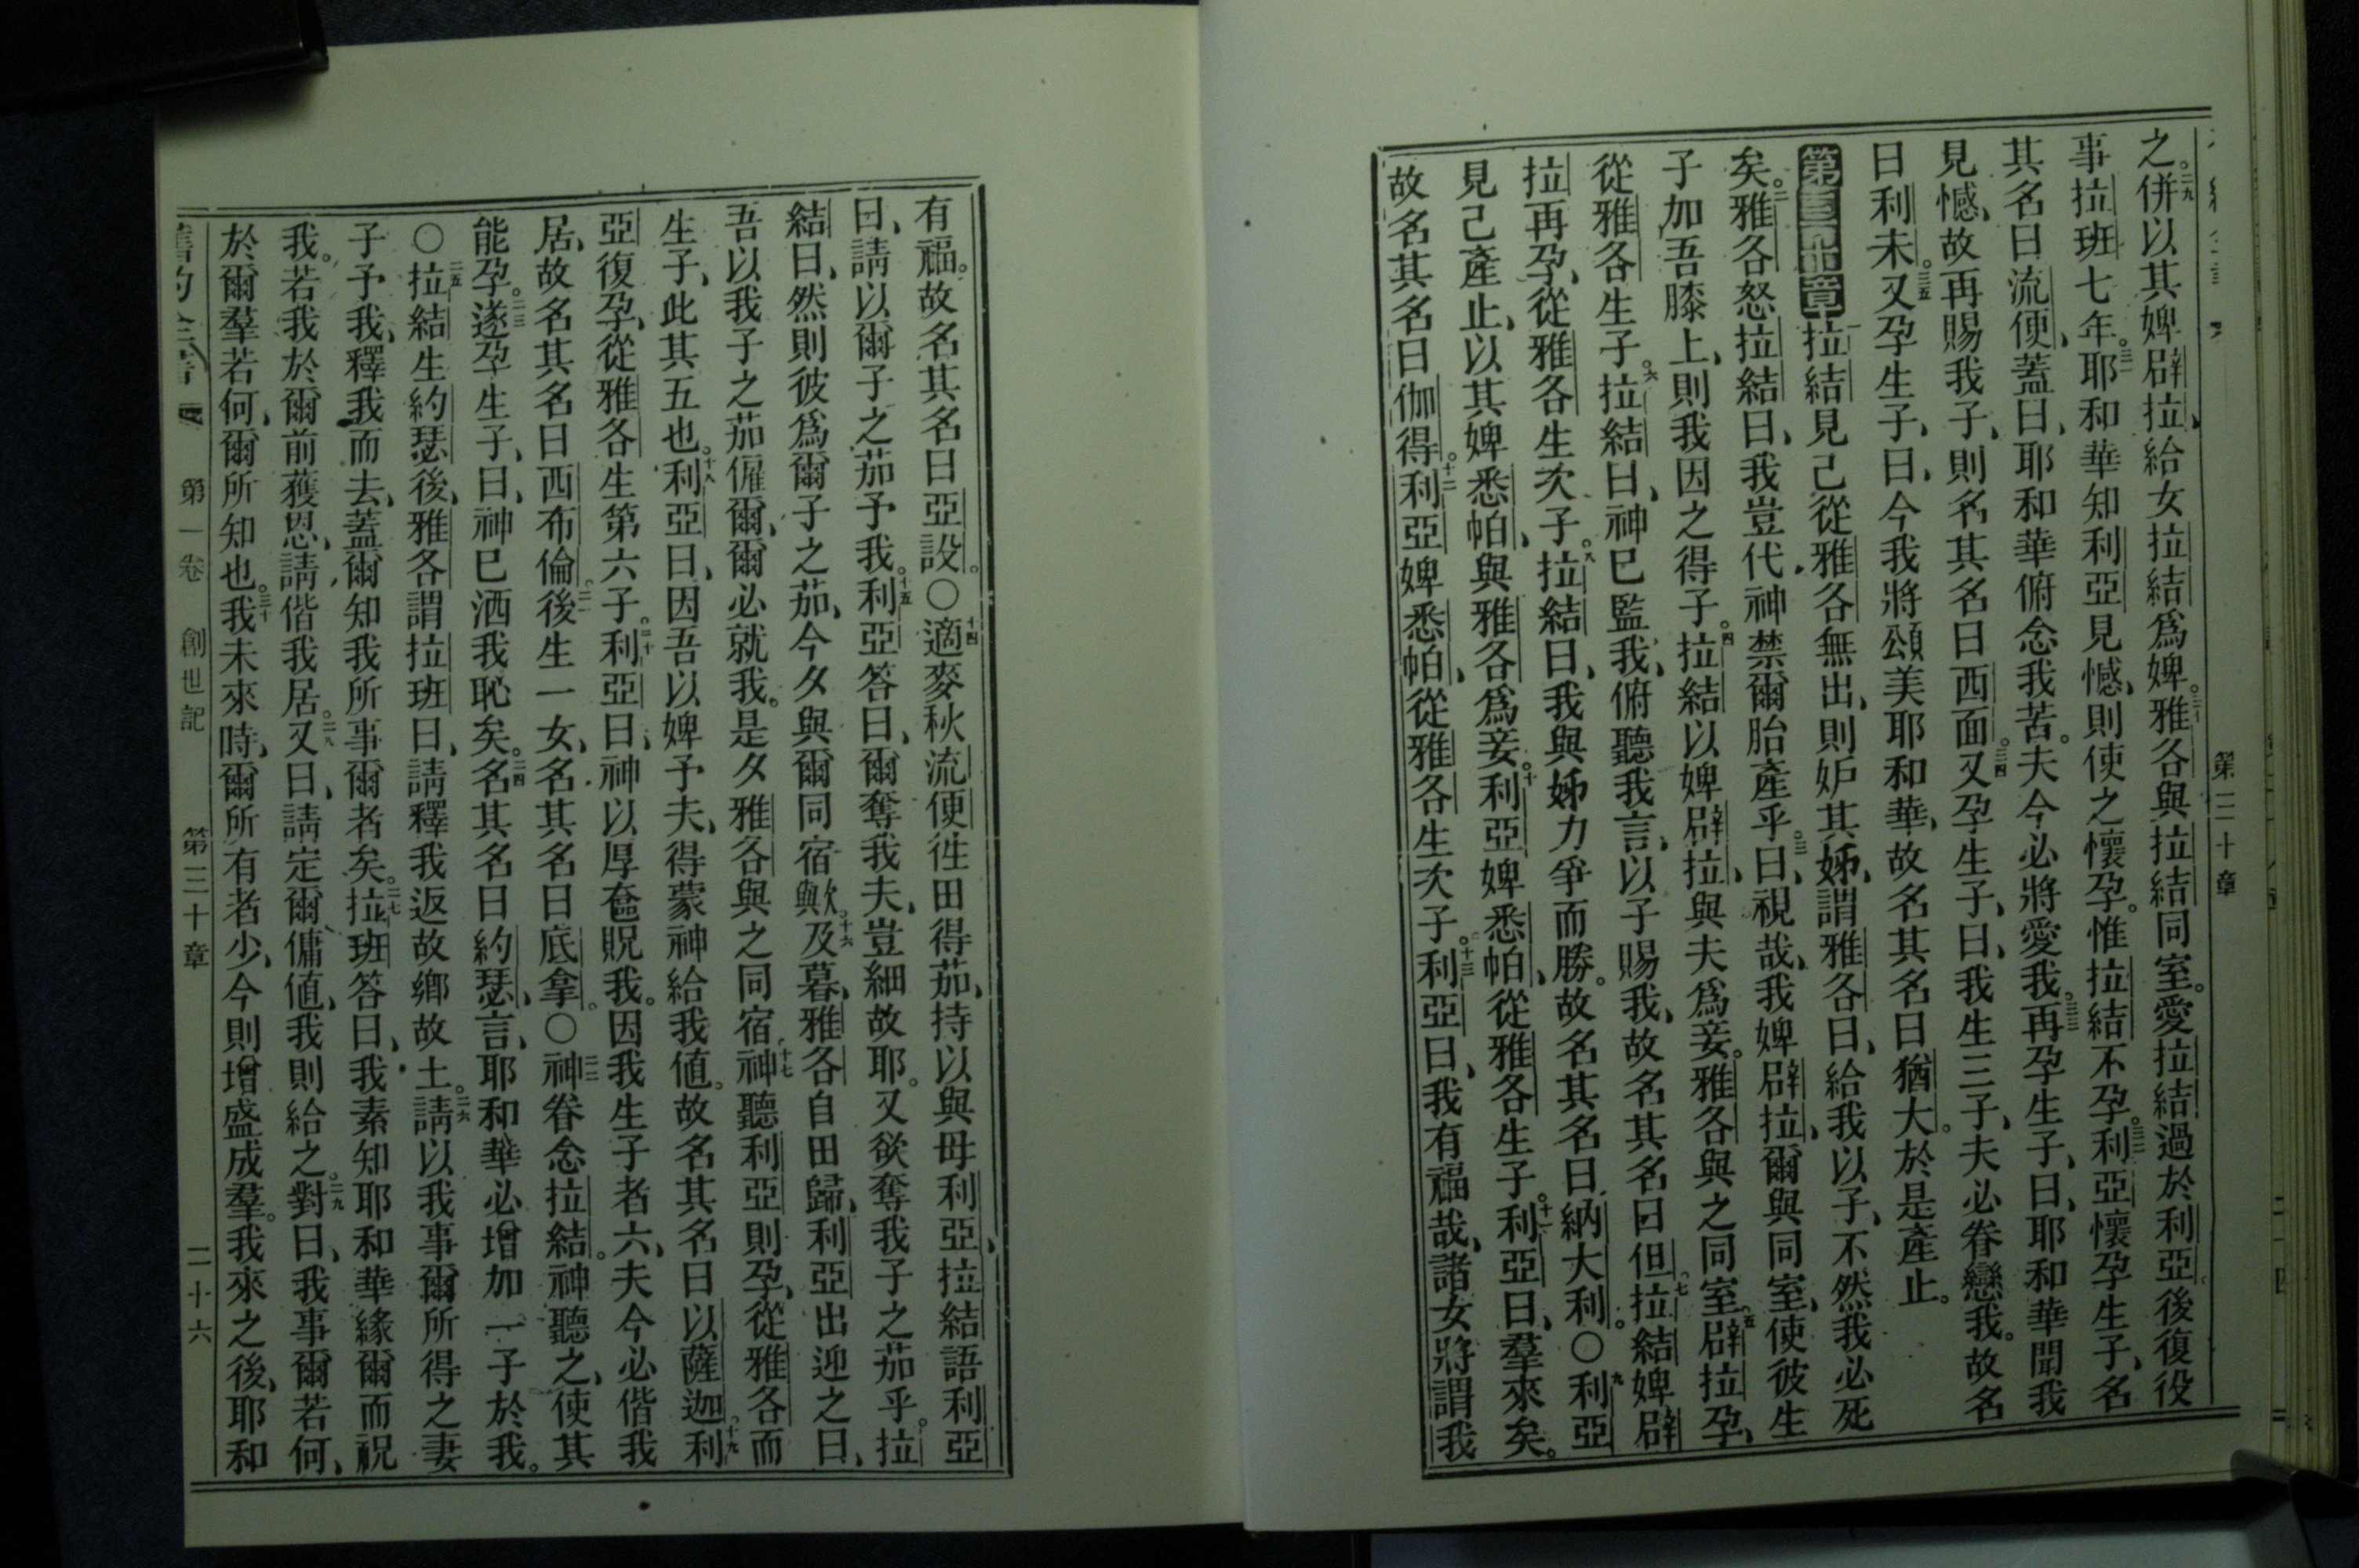 第三十章
之。二九併以其婢辟拉、給女拉結爲婢。三十雅各與拉結同室。愛拉結過於利亞。後復役
事拉班七年。三一耶和華知利亞見憾、則使之懷孕。惟拉結不孕。三二利亞懷孕生子、名
其名曰流便、蓋曰、耶和華俯念我苦。夫今必將愛我。三三再孕生子、曰、耶和華聞我
見憾、故再賜我子、則名其名曰西面。三四又孕生子、曰、我生三子、夫必眷戀我。故名
曰利未。三五又孕生子、曰、今我將頌美耶和華、故名其名曰猶大。於是產止。
第三十章 一拉結見己從雅各無出、則妒其姊、謂雅各曰、給我以子、不然我必死
矣。二雅各怒拉結曰、我豈代神禁爾胎產乎。三曰、視哉、我婢辟拉、爾與同室、使彼生
子加吾膝上、則我因之得子。四拉結以婢辟拉、與夫爲妾。雅各與之同室。五辟拉孕、
從雅各生子。六拉結曰、神已監我、俯聽我言、以子賜我、故名其名曰但。七拉結婢辟
拉再孕、從雅各生次子。八拉結曰、我與姊力爭而勝。故名其名曰納大利。○九利亞
見己產止、以其婢悉帕、與雅各爲妾。十利亞婢悉帕、從雅各生子。十一利亞曰、羣來矣。
故名其名曰伽得。十二利亞婢悉帕、從雅各生次子。十三利亞曰、我有福哉、諸女將謂我
有福。故名其名曰亞設。○十四適麥秋流便往田得茄、持以與母利亞、拉結語利亞
曰、請以爾子之茄予我。十五利亞答曰、爾奪我夫、豈細故耶。又欲奪我子之茄乎。拉
結曰、然則彼爲爾子之茄、今夕與爾同宿歟。十六及暮、雅各自田歸、利亞出迎之曰、
吾以我子之茄僱爾、爾必就我。是夕雅各與之同宿。十七神聽利亞則孕、從雅各而
生子、此其五也。十八利亞曰、因吾以婢予夫、得蒙神給我値。故名其名曰以薩迦。十九利
亞復孕、從雅各生第六子。二十利亞曰、神以厚奩貺我。因我生子者六、夫今必偕我
居、故名其名曰西布倫。二一後生一女、名其名曰底拿。○二二神眷念拉結。神聽之、使其
能孕。二三遂孕生子、曰、神已洒我恥矣。二四名其名曰約瑟、言、耶和華必增加一子於我。
○二五拉結生約瑟後、雅各謂拉班曰、請釋我返故鄉故土。二六請以我事爾所得之妻
子予我、釋我而去、蓋爾知我所事爾者矣。二七拉班答曰、我素知耶和華緣爾而祝
我。若我於爾前獲恩、請偕我居。二八又曰、請定爾傭値、我則給之。二九對曰、我事爾若何、
於爾羣若何、爾所知也。三十我未來時、爾所有者少、今則增盛成羣。我來之後、耶和
第一卷 創世記 第三十章 二十六